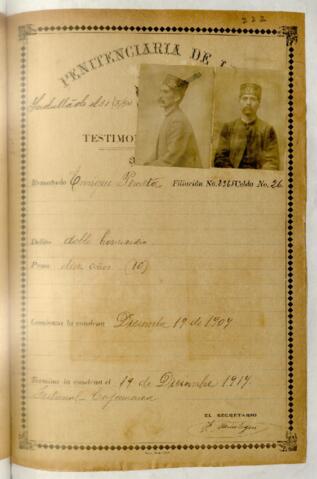 222
PENITENCIARIA DE
TESTIMO
Rematado Enrique Filiación No. Celda No. 26
Delito doble homicidio
Pena diez años (10)
Comienza la condena Diciembre 19 de 1907
Termina la condena el 19 de Diciembre 1917.
Tribunal - Cajamarca
EL SECRETARIO